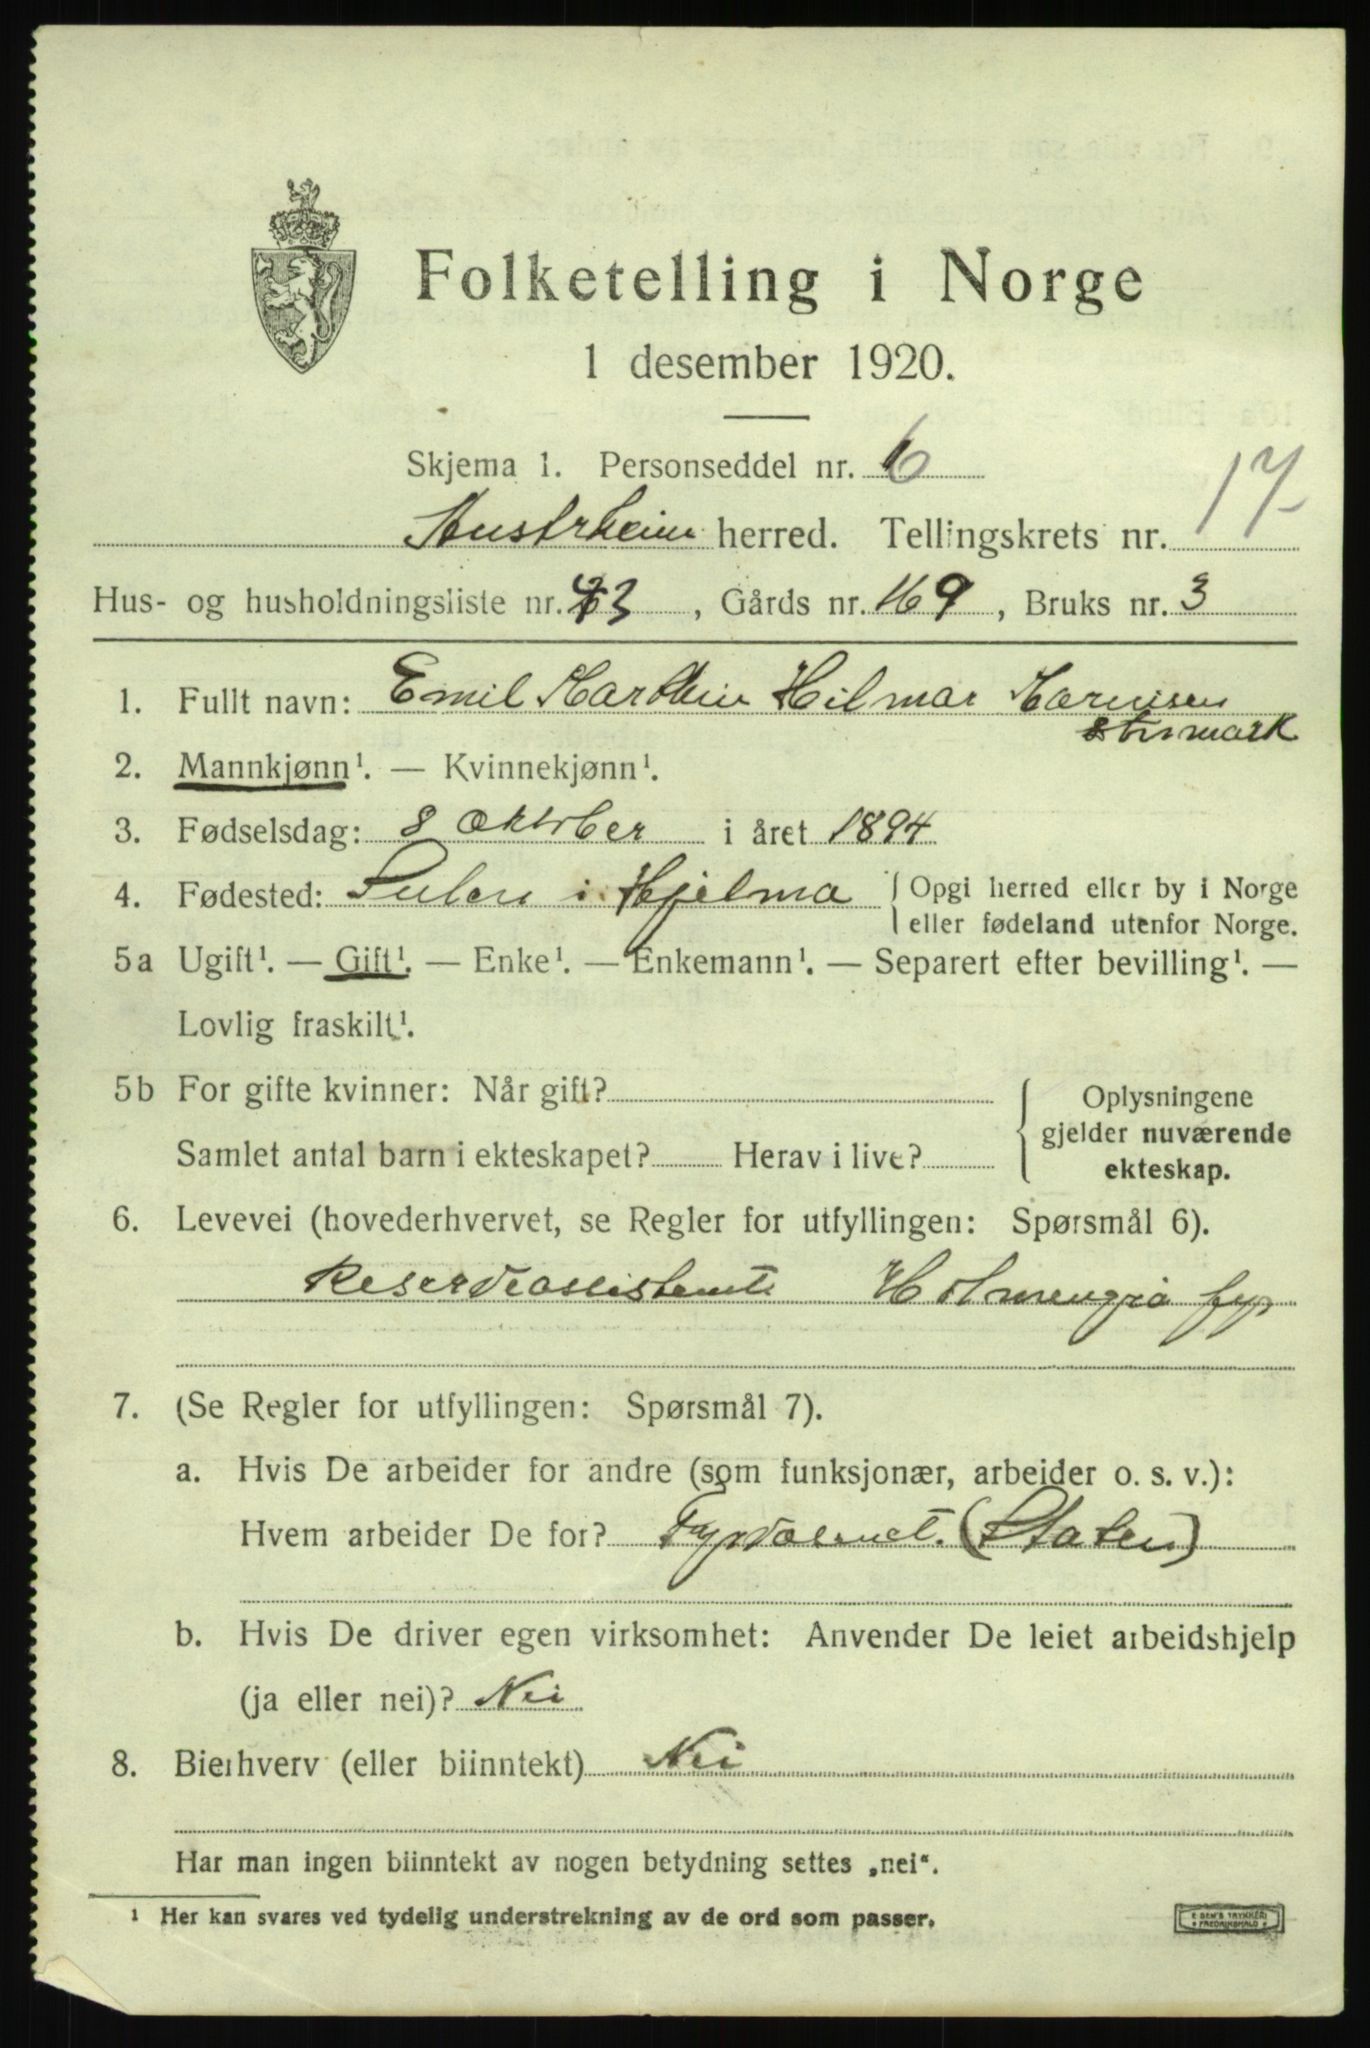 Folketelling i Norge
1 desember 1920.
Skjema 1. Personseddel nr. 6
Austrheim herred. Tellingskrets nr. 17
Hus- og husholdningsliste nr. 73, Gårds nr. 169, Bruks nr. 3
1. Fullt navn: Emil Marthin Hilmar
2. Mannkjønn¹. — Kvinnekjønn¹.
3. Fødselsdag: 8 Oktober i året 1894
4. Fødested: Sulen i Hjelma { Opgi herred eller by i Norge
eller fødeland utenfor Norge.
5a Ugift¹. — Gift¹. — Enke¹. — Enkemann¹. — Separert efter bevilling¹. —
Lovlig fraskilt¹.
5b For gifte kvinner: Når gift?
Samlet antal barn i ekteskapet? Herav i live?
Oplysningene
gjelder nuværende
ekteskap.
6. Levevei (hovederhvervet, se Regler for utfyllingen: Spørsmål 6).
Reserveassistent Holmengrå fyr
7. (Se Regler for utfyllingen: Spørsmål 7).
a. Hvis De arbeider for andre (som funksjonær, arbeider o. s. v.):
Hvem arbeider De for? Fyrvæsnet. (Staten)
b. Hvis De driver egen virksomhet: Anvender De leiet arbeidshjelp
(ja eller nei)? Nei
8. Bierhverv (eller biinntekt) Nei
Har man ingen biinntekt av nogen betydning settes „nei“.
¹ Her kan svares ved tydelig understrekning av de ord som passer.